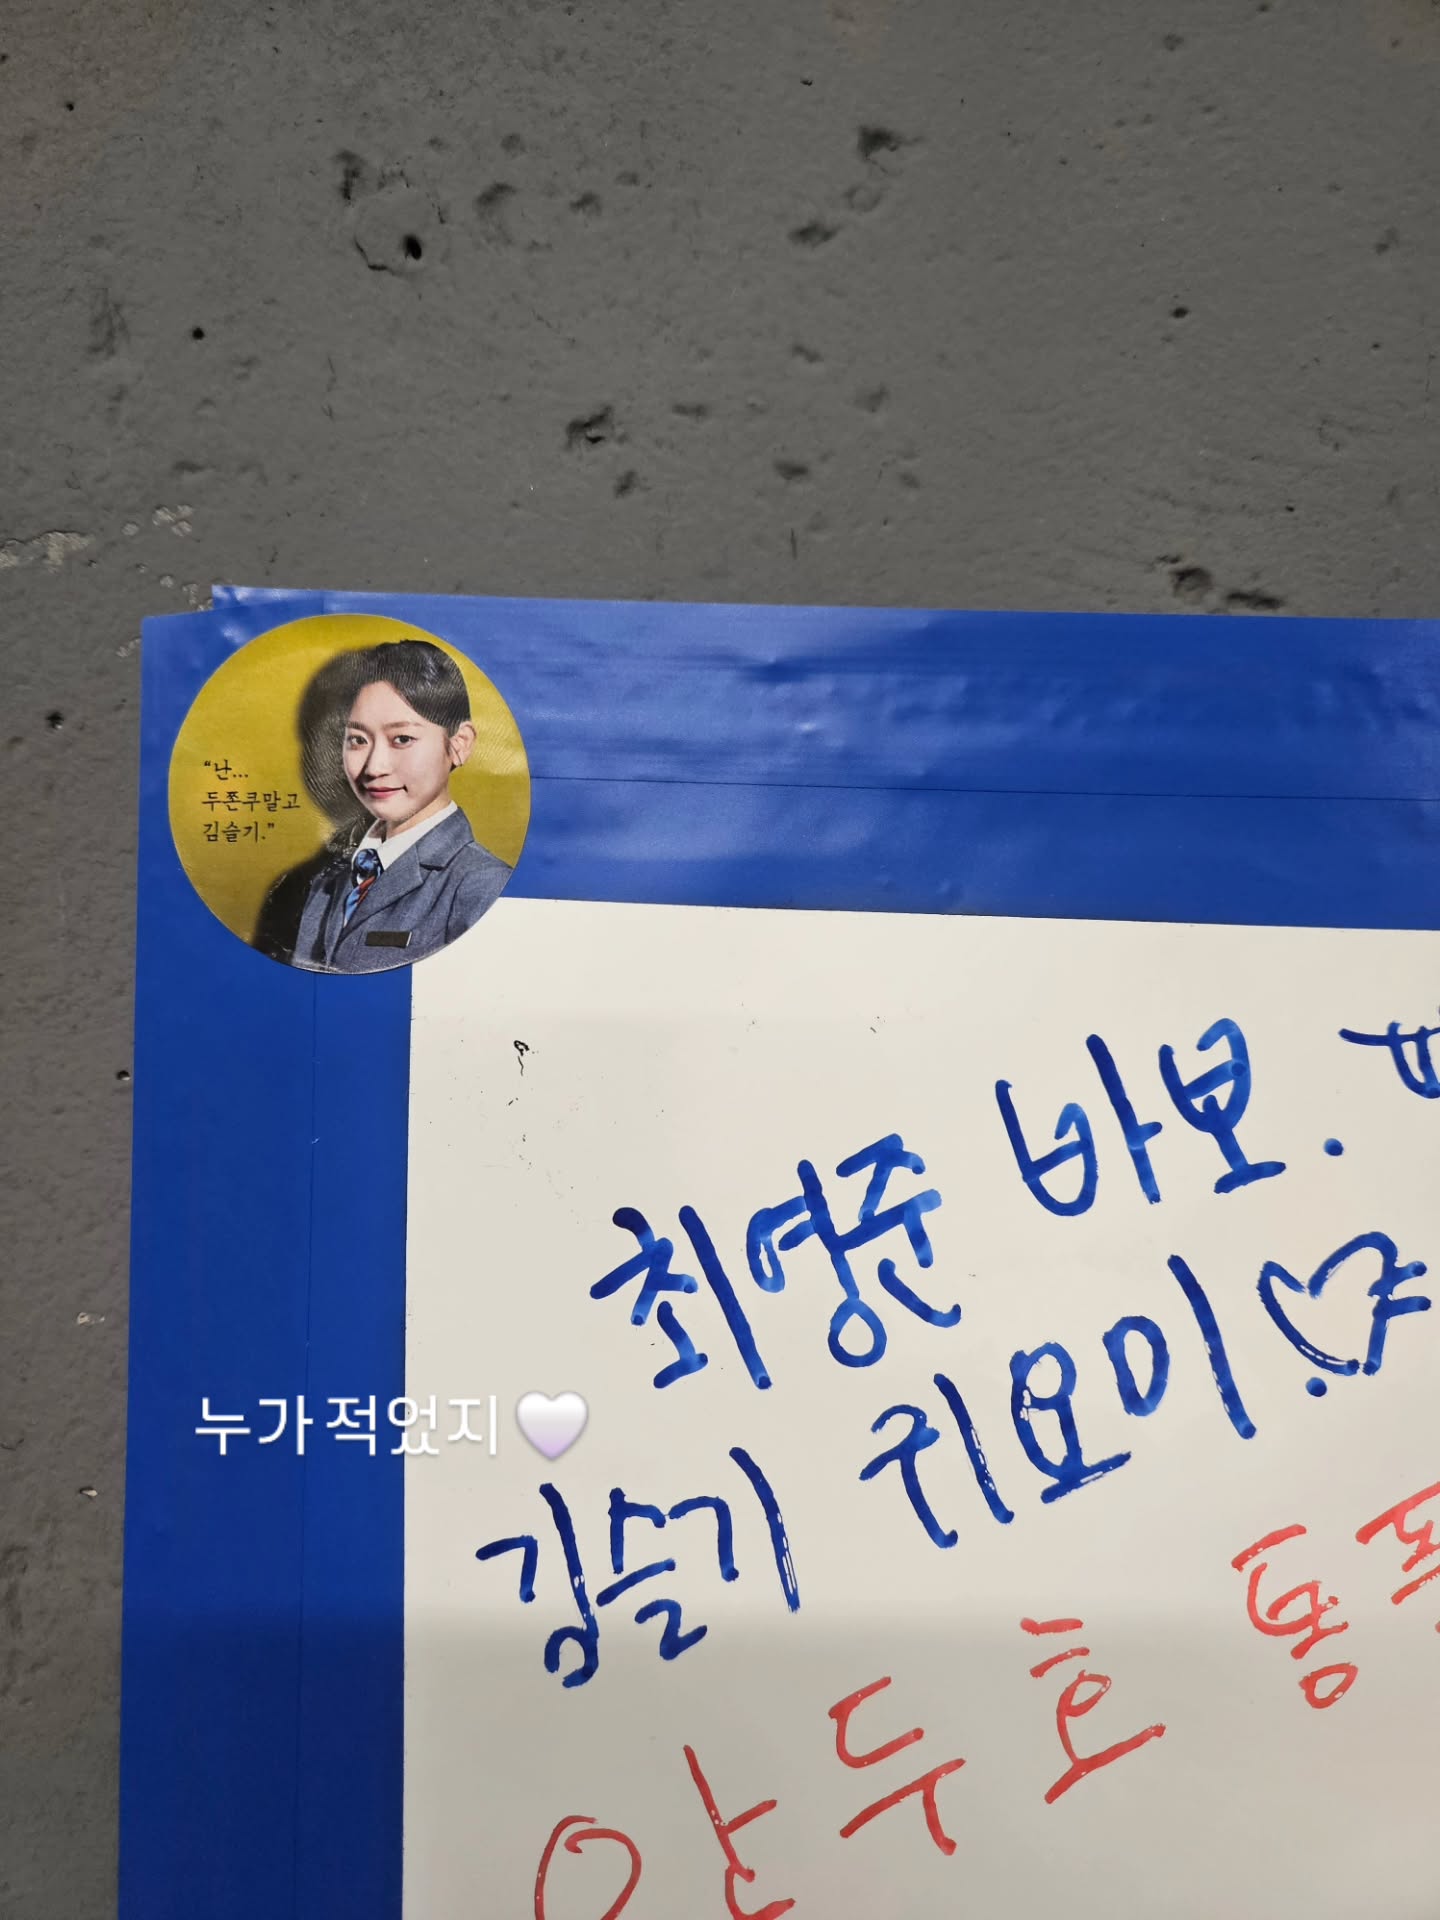 “난...
두쫀쿠말고
김슬기.”
최영준 바보.
누가 적었지
김슬기 귀요미
안두호